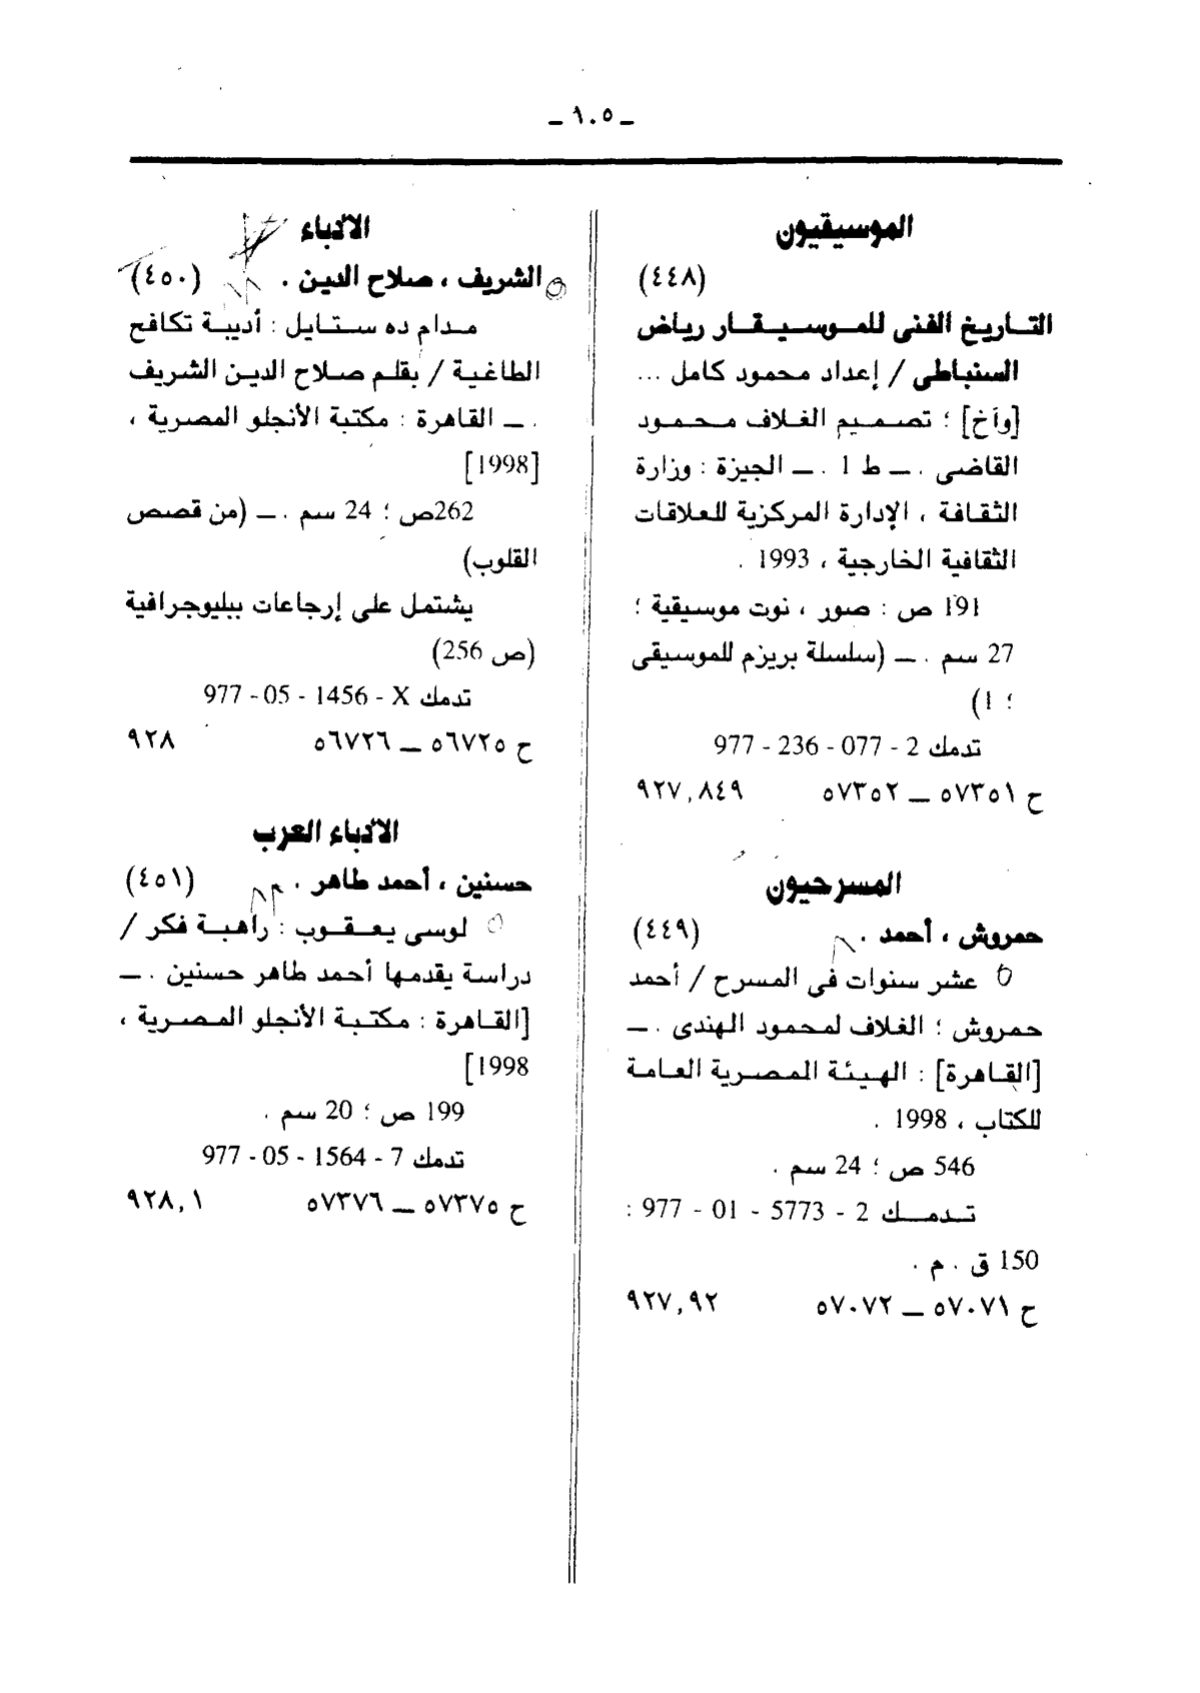 ـ ١٠٥ ـ
الموسيقيون
(٤٤٨)
التاريخ الفنى للموسيقار رياض
السنباطى / إعداد محمود كامل ...
[وآخ] ؛ تصميم الغلاف محمود
القاضى . ـ ط 1 . ـ الجيزة : وزارة
الثقافة ، الإدارة المركزية للعلاقات
الثقافية الخارجية ، 1993 .
191 ص : صور ، نوت موسيقية ؛
27 سم . ـ (سلسلة بريزم للموسيقى
؛ 1)
تدمك 2 - 077 - 236 - 977
ح ٥٧٣٥١ ـ ٥٧٣٥٢ ٩٢٧,٨٤٩
المسرحيون
حمروش ، أحمد . (٤٤٩)
عشر سنوات فى المسرح / أحمد
حمروش ؛ الغلاف لمحمود الهندى . ـ
[القاهرة] : الهيئة المصرية العامة
للكتاب ، 1998 .
546 ص ؛ 24 سم .
تدمك 2 - 5773 - 01 - 977 :
150 ق . م .
ح ٥٧٠٧١ ـ ٥٧٠٧٢ ٩٢٧,٩٢
الأدباء
الشريف ، صلاح الدين . (٤٥٠)
مدام ده ستايل : أديبة تكافح
الطاغية / بقلم صلاح الدين الشريف
. ـ القاهرة : مكتبة الأنجلو المصرية ،
[1998]
262ص ؛ 24 سم . ـ (من قصص
القلوب)
يشتمل على إرجاعات ببليوجرافية
(ص 256)
تدمك X - 1456 - 05 - 977
ح ٥٦٧٢٥ ـ ٥٦٧٢٦ ٩٢٨
الأدباء العرب
حسنين ، أحمد طاهر . (٤٥١)
لوسى يعقوب : راهبة فكر /
دراسة يقدمها أحمد طاهر حسنين . ـ
[القاهرة : مكتبة الأنجلو المصرية ،
1998]
199 ص ؛ 20 سم .
تدمك 7 - 1564 - 05 - 977
ح ٥٧٣٧٥ ـ ٥٧٣٧٦ ٩٢٨,١